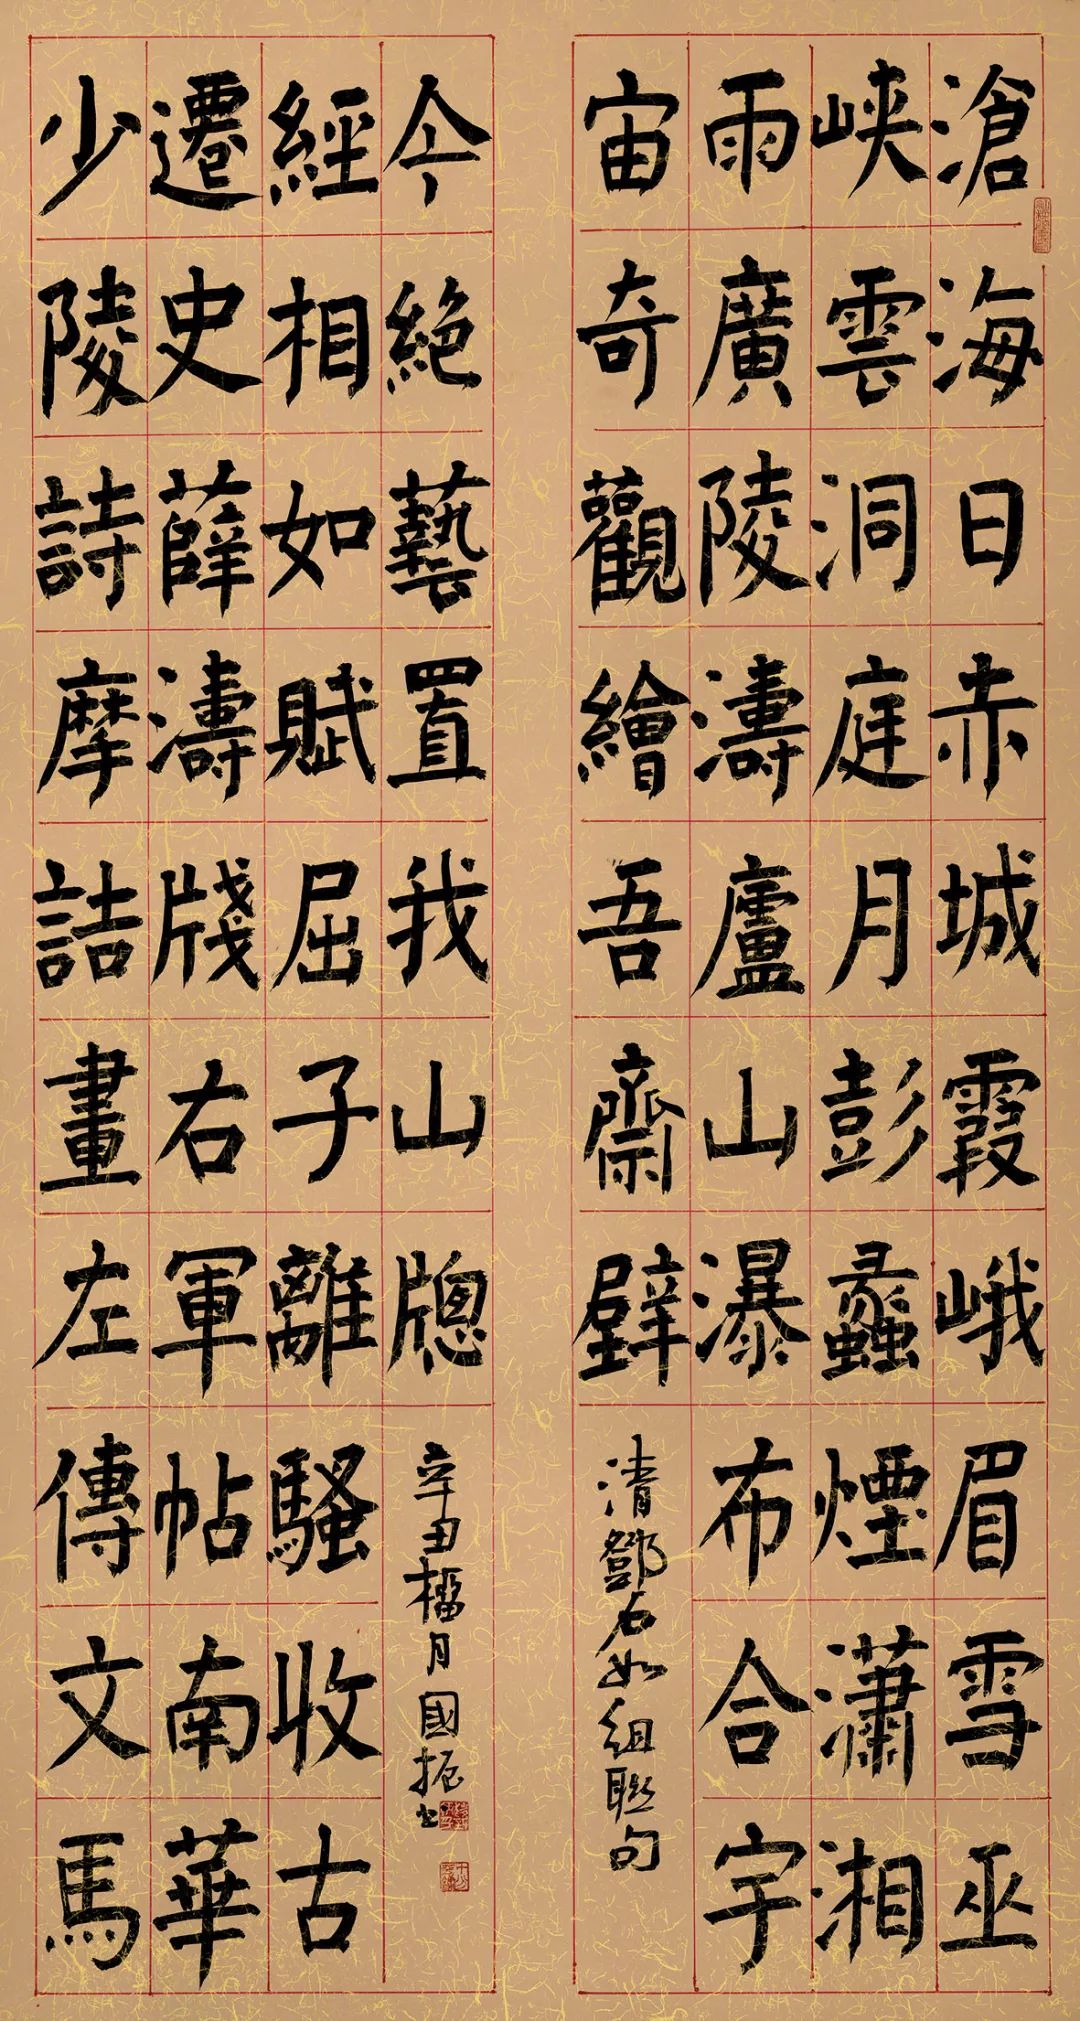 滄海日赤城霞峨眉雪巫
峽雲洞庭月彭蠡煙瀟湘
雨廣陵濤廬山瀑布合宇
宙奇觀繪吾齋壁
清鄧石如組聯句
少陵詩摩詰畫左傳文馬
遷史薛濤牋右軍帖南華
經相如賦屈子離騷收古
今絕藝置我山牕
辛丑榴月國振书